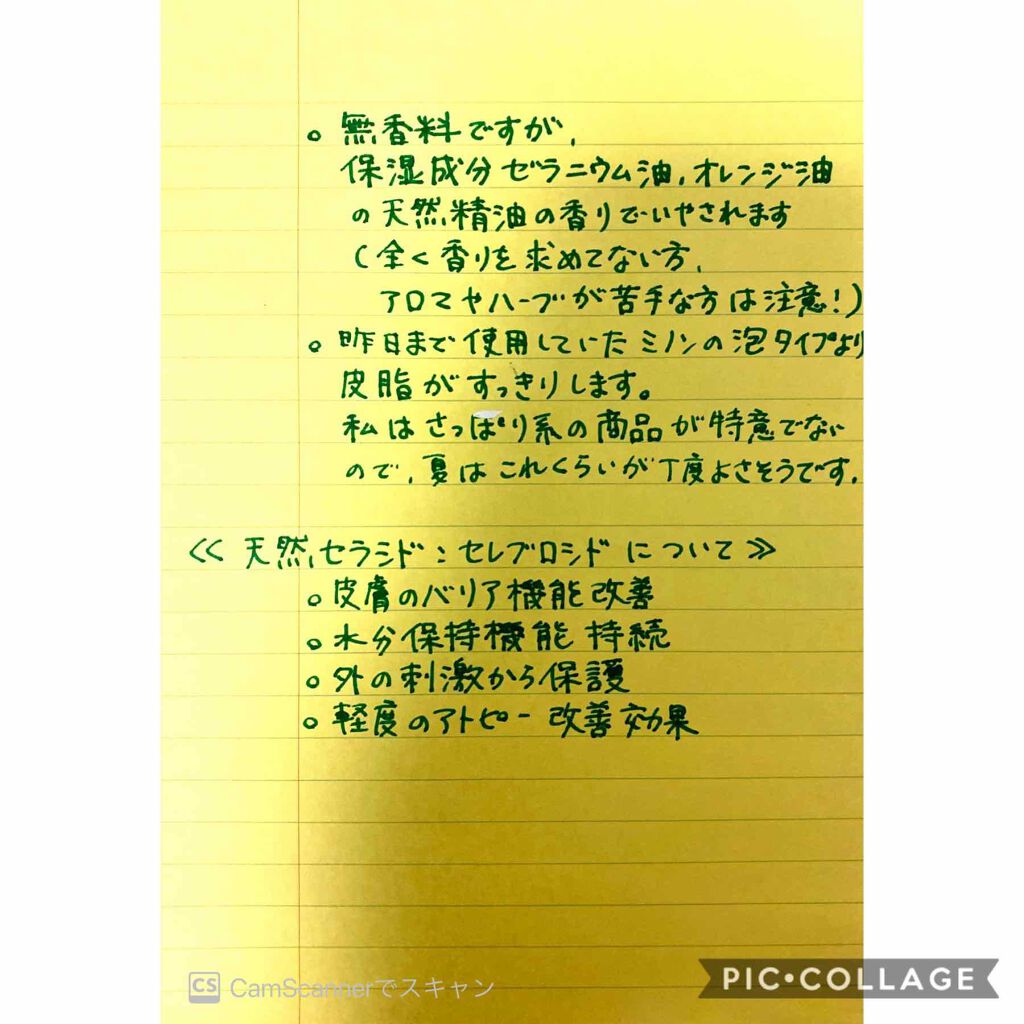 。無香料ですが、
保湿成分ゼラニウム油、オレンジ油
の天然精油の香りでいやされます
(全く香りを求めてない方、
アロマやハーブが苦手な方は注意!)
。昨日まで使用していたミノンの泡タイプより
皮脂がすっきりします。
私はさっぱり系の商品が特意でない
ので、夏はこれくらいが丁度よさそうです。
≪天然セラミド:セレブロシドについて≫
。皮膚のバリア機能改善
。水分保持機能持続
。外の刺激から保護
。軽度のアトピー改善効果
CS CamScannerでスキャン
PIC•COLLAGE